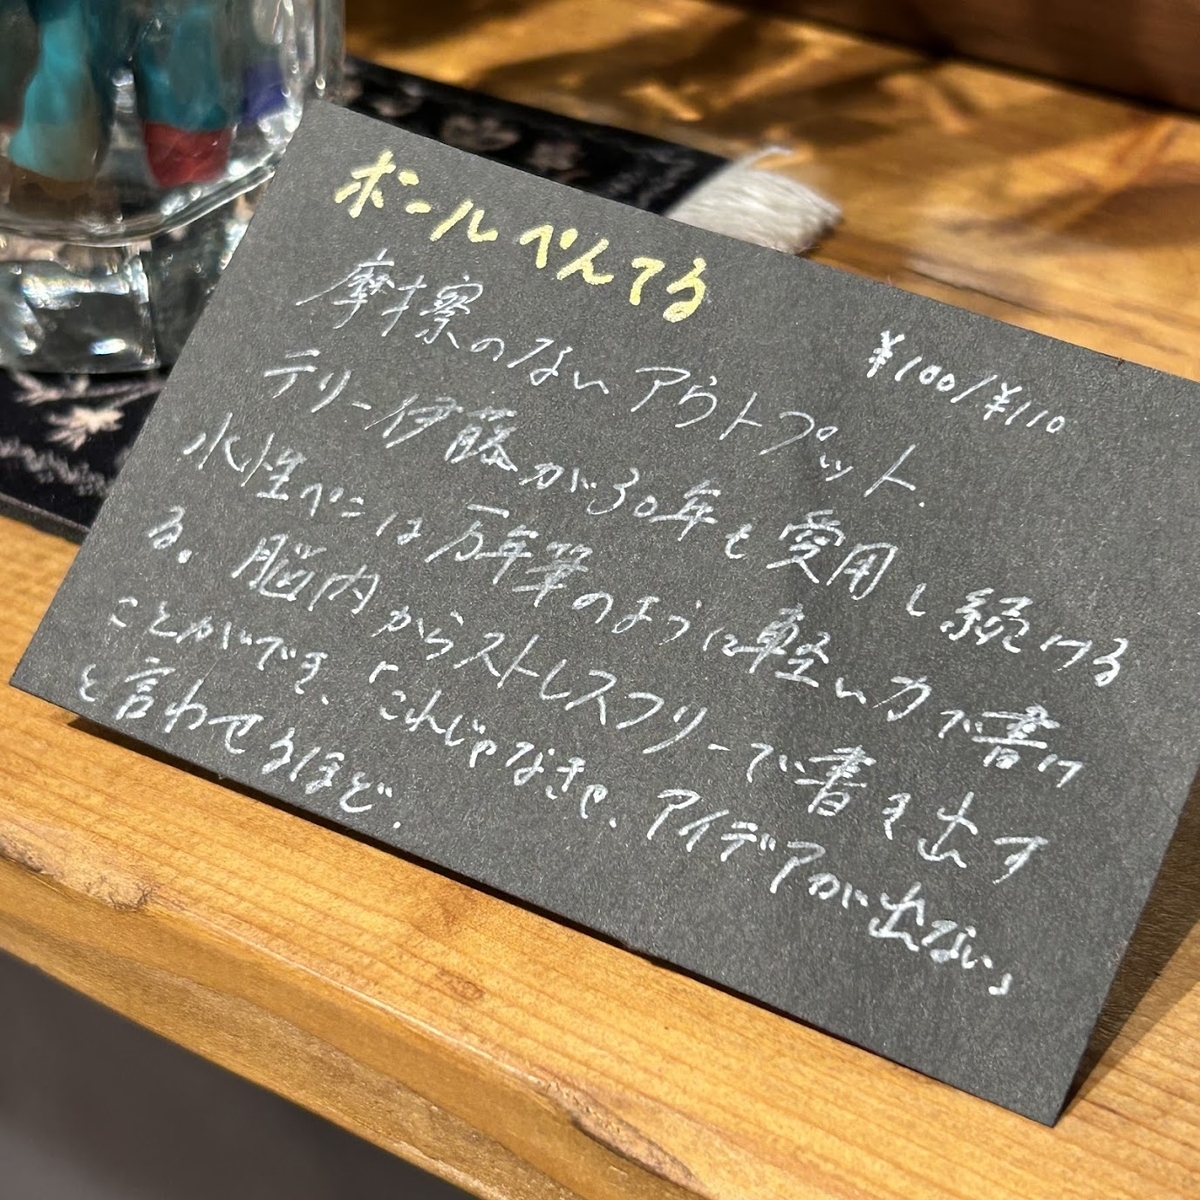 ボールぺんてる
¥100/¥110
摩擦のないアウトプット.
テリー伊藤が30年も愛用し続ける
水性ペンは万年筆のように軽い力で書け
る。脳内からストレスフリーで書き出す
ことができ、「これじゃなきゃ、アイデアが出ない」
と言わせるほど.